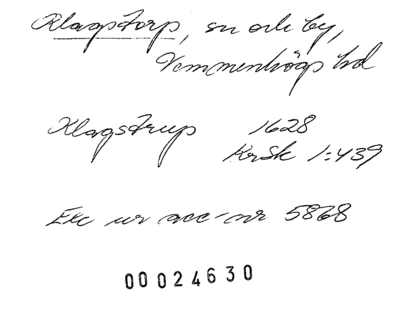 Klagstorp, sn och by,
Vemmenhögs hd
Klagstrup 1628
KrSk 1:439
Exc ur acc-nr 5868
00024630